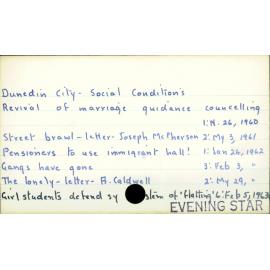 Dunedin City - Social Conditions
Revival of marriage guidance councelling
1: N. 26, 1960
Street brawl - letter - Joseph McPherson 2: My 3, 1961
Pensioners to use immigrant hall! 1: Jan 26, 1962
Gangs have gone 3: Feb 3, "
The lonely - letter - A. Caldwell 2: My 29, "
Girl students defend sy stem of 'flatting' 6: Feb 5, 1963
EVENING STAR